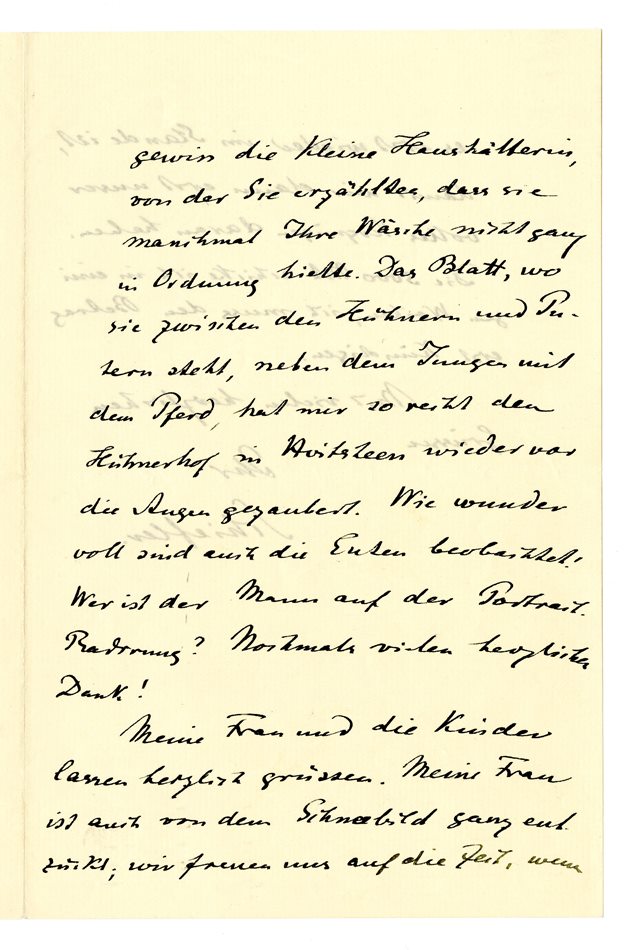 gewiss die kleine Haushälterin,
von der Sie erzählten, dass sie
manchmal Ihre Wäsche nicht ganz
in Ordnung hielte. Das Blatt, wo
sie zwischen den Hühnern und Pu-
tern steht, neben dem Jungen mit
dem Pferd, hat mir so recht den
Hühnerhof in Hvitsteen wieder vor
die Augen gezaubert. Wie wunder
voll sind auch die Enten beobachtet!
Wer ist der Mann auf der Portrait-
Radirung? Nochmals vielen herzlichen
Dank!
Meine Frau und die Kinder
lassen herzlich grüssen. Meine Frau
ist auch von dem Schneebild ganz ent-
zückt; wir freuen uns auf die Zeit, wenn